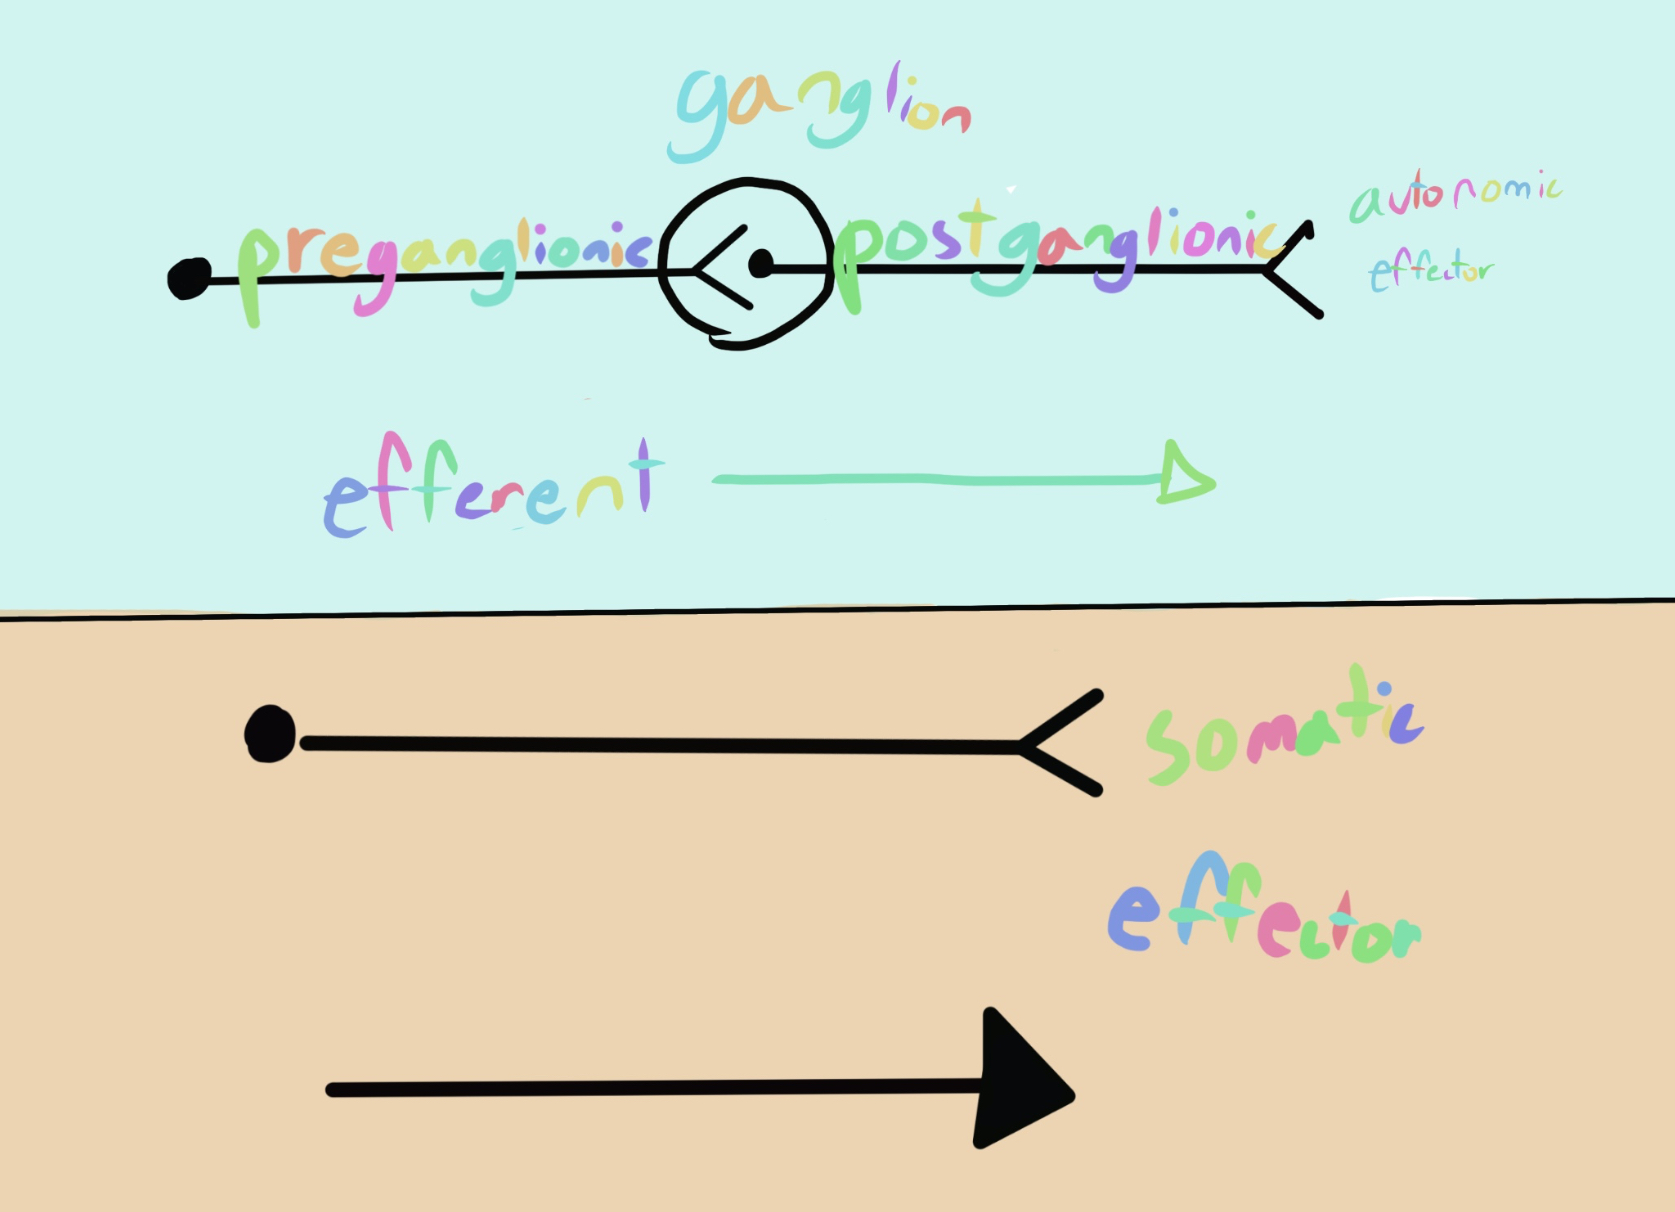 ganglion
preganglionic postganglionic
autonomic
effector
efferent
somatic
effector